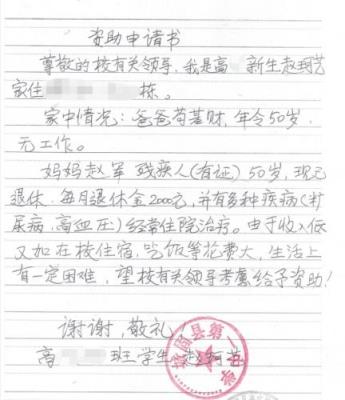 资助申请书
尊敬的校有关领导，我是高 新生赵珂艺
家住 栋。
家中情况：爸爸苟基财，年令50岁，
无工作。
妈妈赵军 残疾人(有证)50岁，现已
退休，每月退休金2000元，并有多种疾病(
尿病，高血压)经常住院治疗。由于收入低
又加在校住宿，吃饭等花费大，生活上
有一定困难，望校有关领导考虑给予资助！
谢谢，敬礼
高 班学生 赵珂艺
固县第一